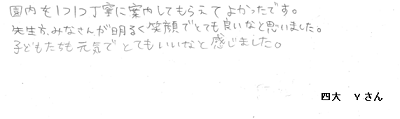 園内を1つ1つ丁寧に案内してもらえてよかったです。
先生方、みなさんが明るく笑顔でとても良いなと思いました。
子どもたちも元気でとてもいいなと感じました。
四大　Yさん